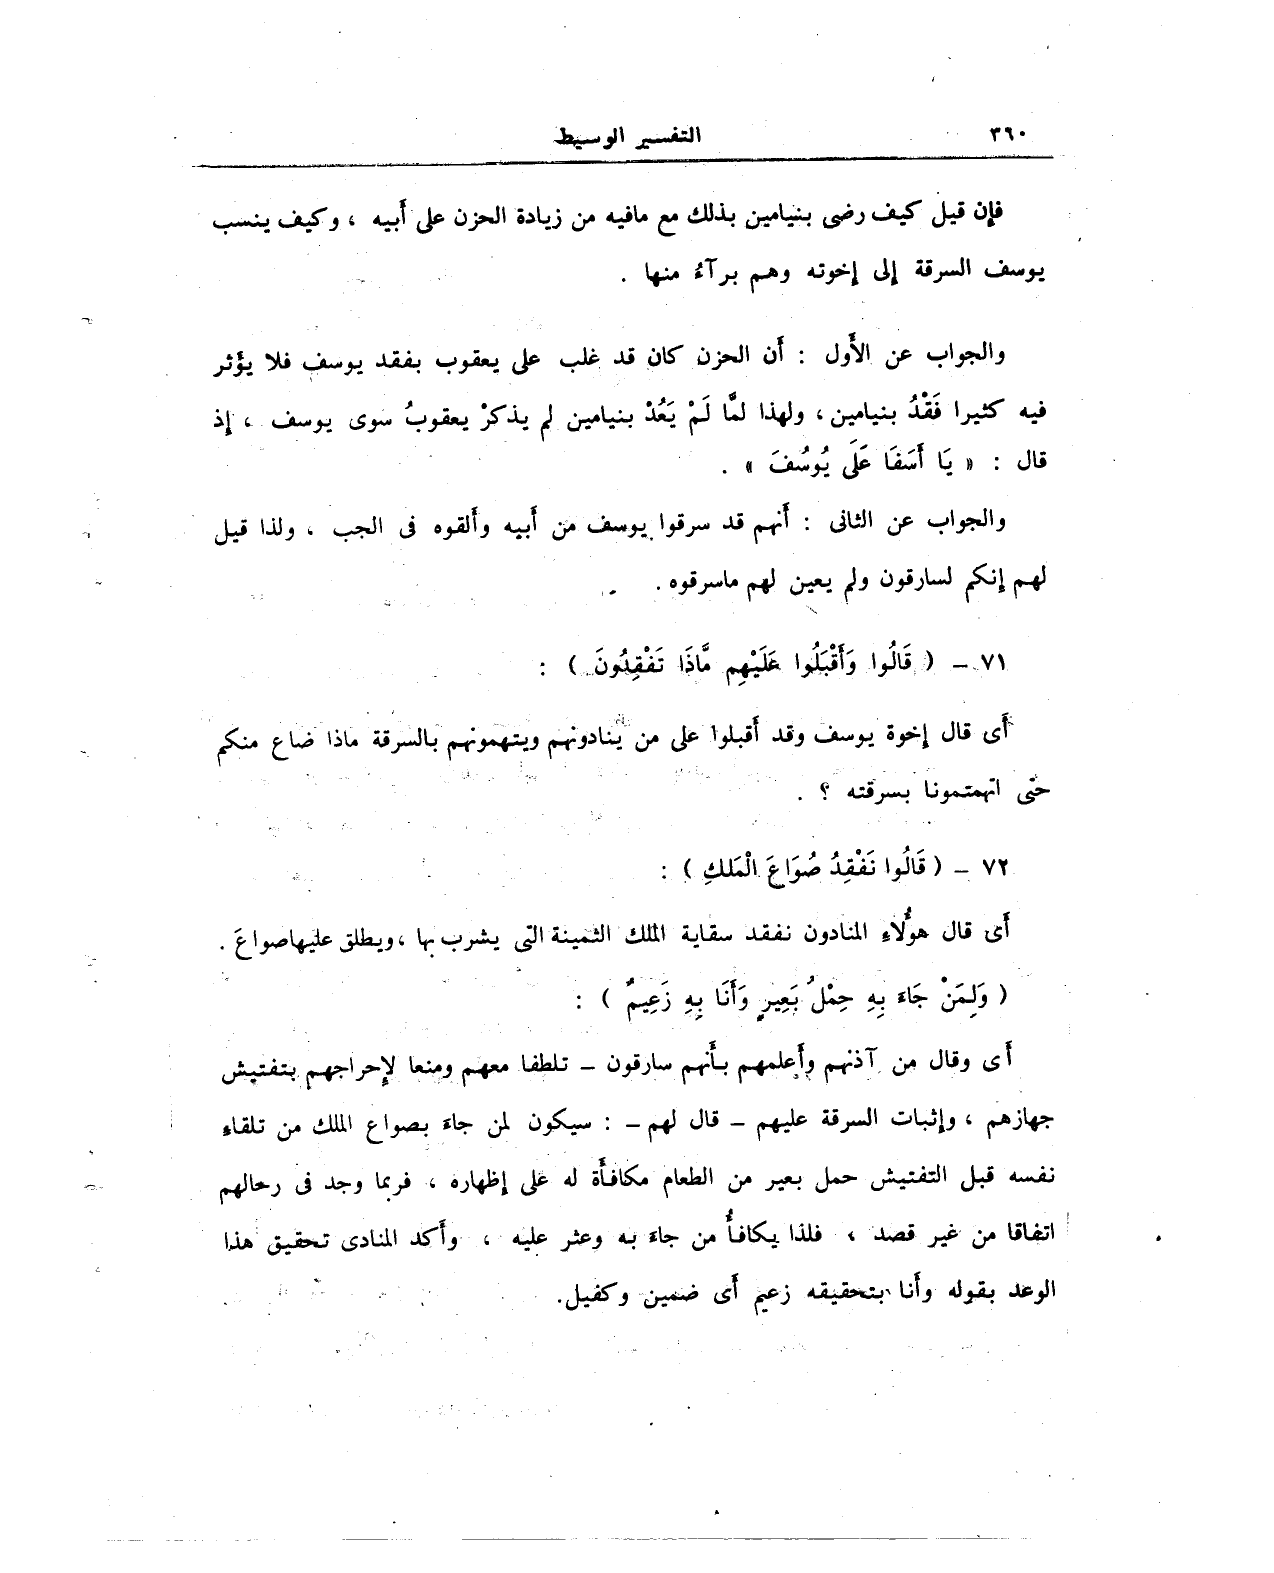 ٣٦٠ التفسير الوسيط
فإن قيل كيف رضى بنيامين بذلك مع مافيه من زيادة الحزن على أبيه ، وكيف ينسب
يوسف السرقة إلى إخوته وهم برآءُ منها .
والجواب عن الأول : أن الحزن كان قد غلب على يعقوب بفقد يوسف فلا يؤثر
فيه كثيرا فَقْدُ بنيامين ، ولهذا لمَّا لَمْ يَعُدْ بنيامين لم يذكرْ يعقوبُ سوى يوسف ، إذ
قال : « يَا أَسَفَا عَلَى يُوسُفَ » .
والجواب عن الثانى : أنهم قد سرقوا يوسف من أبيه وألقوه فى الجب ، ولذا قيل
لهم إنكم لسارقون ولم يعين لهم ماسرقوه .
٧١ – ( قَالُوا وَأَقْبَلُوا عَلَيْهِم مَّاذَا تَفْقِدُونَ ) :
أى قال إخوة يوسف وقد أقبلوا على من ينادونهم ويتهمونهم بالسرقة ماذا ضاع منكم
حتى اتهمتمونا بسرقته ؟ .
٧٢ – ( قَالُوا نَفْقِدُ صُوَاعَ الْمَلكِ ) :
أى قال هؤُلاءِ المنادون نفقد سقاية الملك الثمينة التى يشرب بها ، ويطلق عليهاصواعَ .
( وَلِمَنْ جَاءَ بِهِ حِمْلُ بَعِيرٍ وَأَنَا بِهِ زَعِيمٌ ) :
أى وقال من آذنهم وأعلمهم بأنهم سارقون – تلطفا معهم ومنعا لإحراجهم بتفتيش
جهازهم ، وإثبات السرقة عليهم – قال لهم – : سيكون لمن جاءَ بصواع الملك من تلقاء
نفسه قبل التفتيش حمل بعير من الطعام مكافأة له على إظهاره ، فربما وجد فى رحالهم
اتفاقا من غير قصد ، فلذا يكافأُ من جاءَ به وعثر عليه ، وأكد المنادى تحقيق هذا
الوعد بقوله وأنا بتحقيقه زعيم أى ضمين وكفيل.